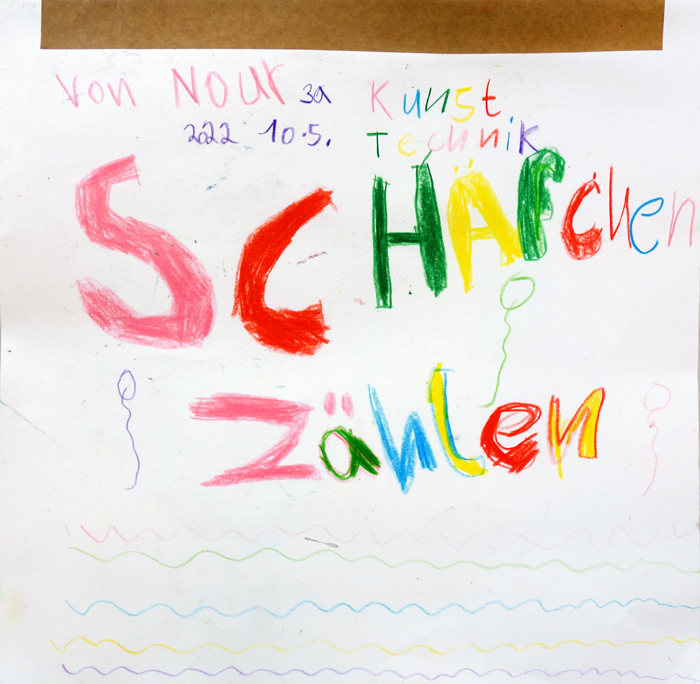 von NOUR 3a
2022 10.5.
Kunst
Technik
SCHÄFchen
Zählen